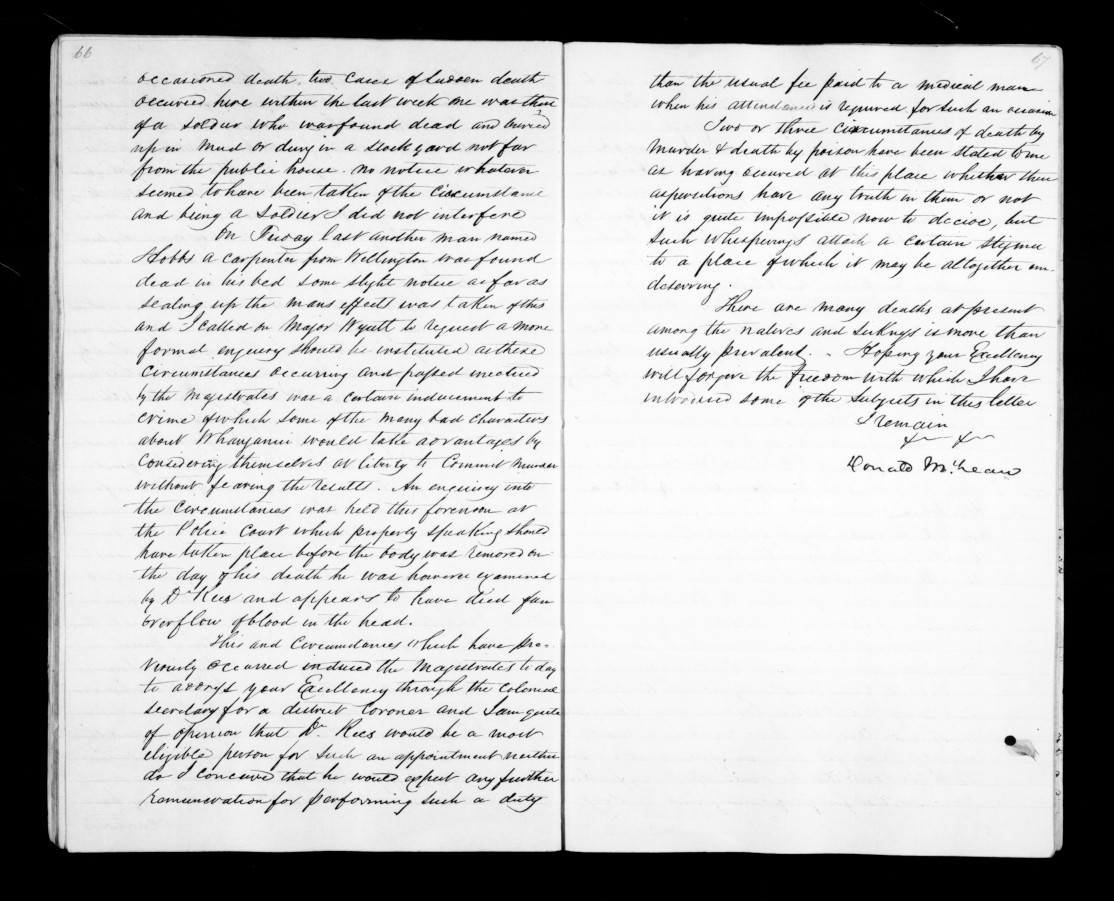 66
occasioned death, two cases of sudden death
occurred here within the last week one was that
of a soldier who was found dead and buried
up in mud or dung in a stock yard not far
from the public house. no notice whatever
seemed to have been taken of the Circumstance
and being a Soldier I did not interfere
On Friday last another man named
Hobbs a Carpenter from Wellington was found
dead in his bed some slight notice as far as
sealing up the mans effects was taken of this
and I called on Major Wyatt to request a more
formal enquiry should be instituted as these
Circumstances occurring and passed unnoticed
by the Magistrates was a certain inducement to
crime of which some of the many bad characters
about Whanganui would take advantages by
Considering themselves at liberty to Commit Murder
without fearing the results. An enquiry into
the Circumstances was held this forenoon at
the Police Court which properly speaking should
have taken place before the body was removed on
the day of his death he was however examined
by Dr Rees and appears to have died from
overflow of blood in the head.
This and Circumstances which have pre-
viously occurred induced the Magistrates to day
to address your Excellency through the Colonial
Secretary for a district Coroner and I am quite
of opinion that Dr Rees would be a most
eligible person for such an appointment neither
do I conceive that he would expect any further
remuneration for performing such a duty
67
than the usual fee paid to a medical man
when his attendance is required for such an occasion
Two or three Circumstances of death by
Murder & death by poison have been stated to me
as having occured at this place whether these
aspersions have any truth in them or not
it is quite impossible now to decide, but
such whisperings attach a certain stigma
to a place of which it may be altogether un-
deserving.
There are many deaths at present
among the natives and sickness is more than
usually prevalent. - Hoping your Excellency
will forgive the freedom with which I have
introduced some of the subjects in this letter
I remain
Donald McLean